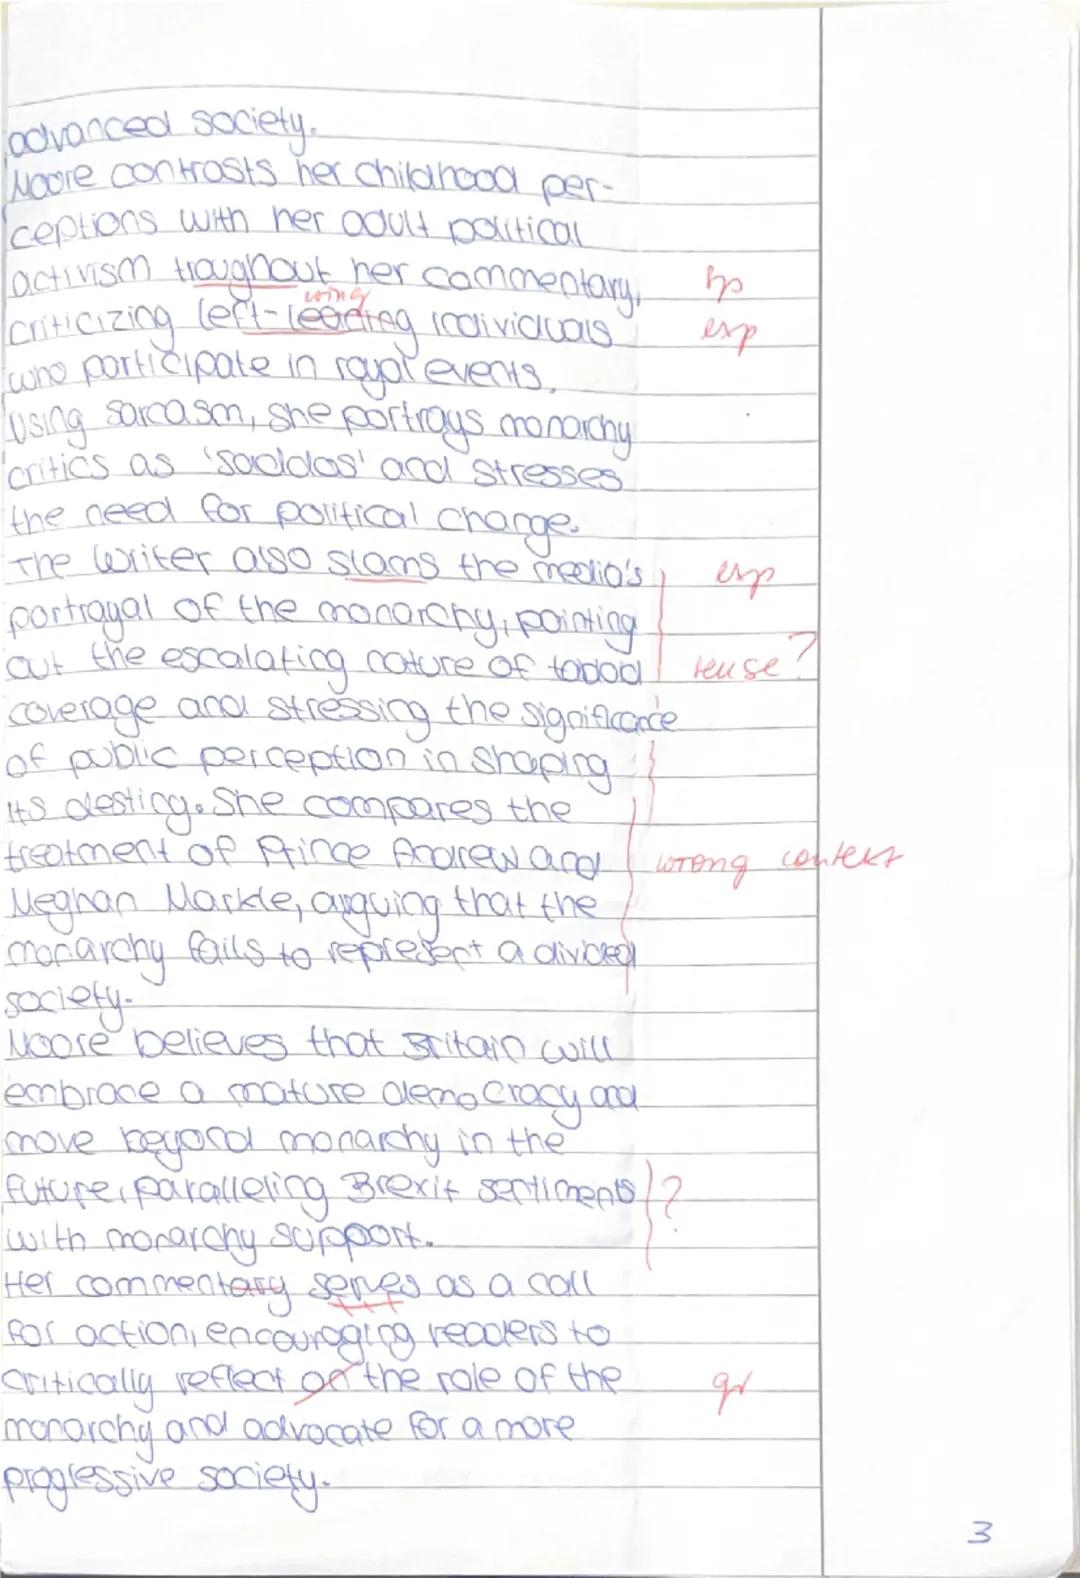 advanced society.
Moore contrasts her childhood per-
ceptions with her adult political
activism troughout her commentary,
sp
wing
criticizing left-leading individuals
exp
who participate in royal events.
Using sarcasm, she portrays monarchy
critics as 'saddos' and stresses
the need for political change.
The writer also slams the media's
exp
portrayal of the monarchy, pointing
out the escalating nature of
tense?
coverage and stressing the significance
of public perception in shaping
its destiny. She compares the
treatment of Prince Andrew and
wrong context
Meghan Markle, arguing that the
monarchy fails to represent a divided
society.
Moore believes that Britain will
embrace a mature democracy and
move beyond monarchy in the
future, paralleling Brexit sentiments
?
with monarchy support.
Her commentary serves as a call
for action, encouraging readers to
critically reflect on the role of the
gr
monarchy and advocate for a more
progressive society.
3